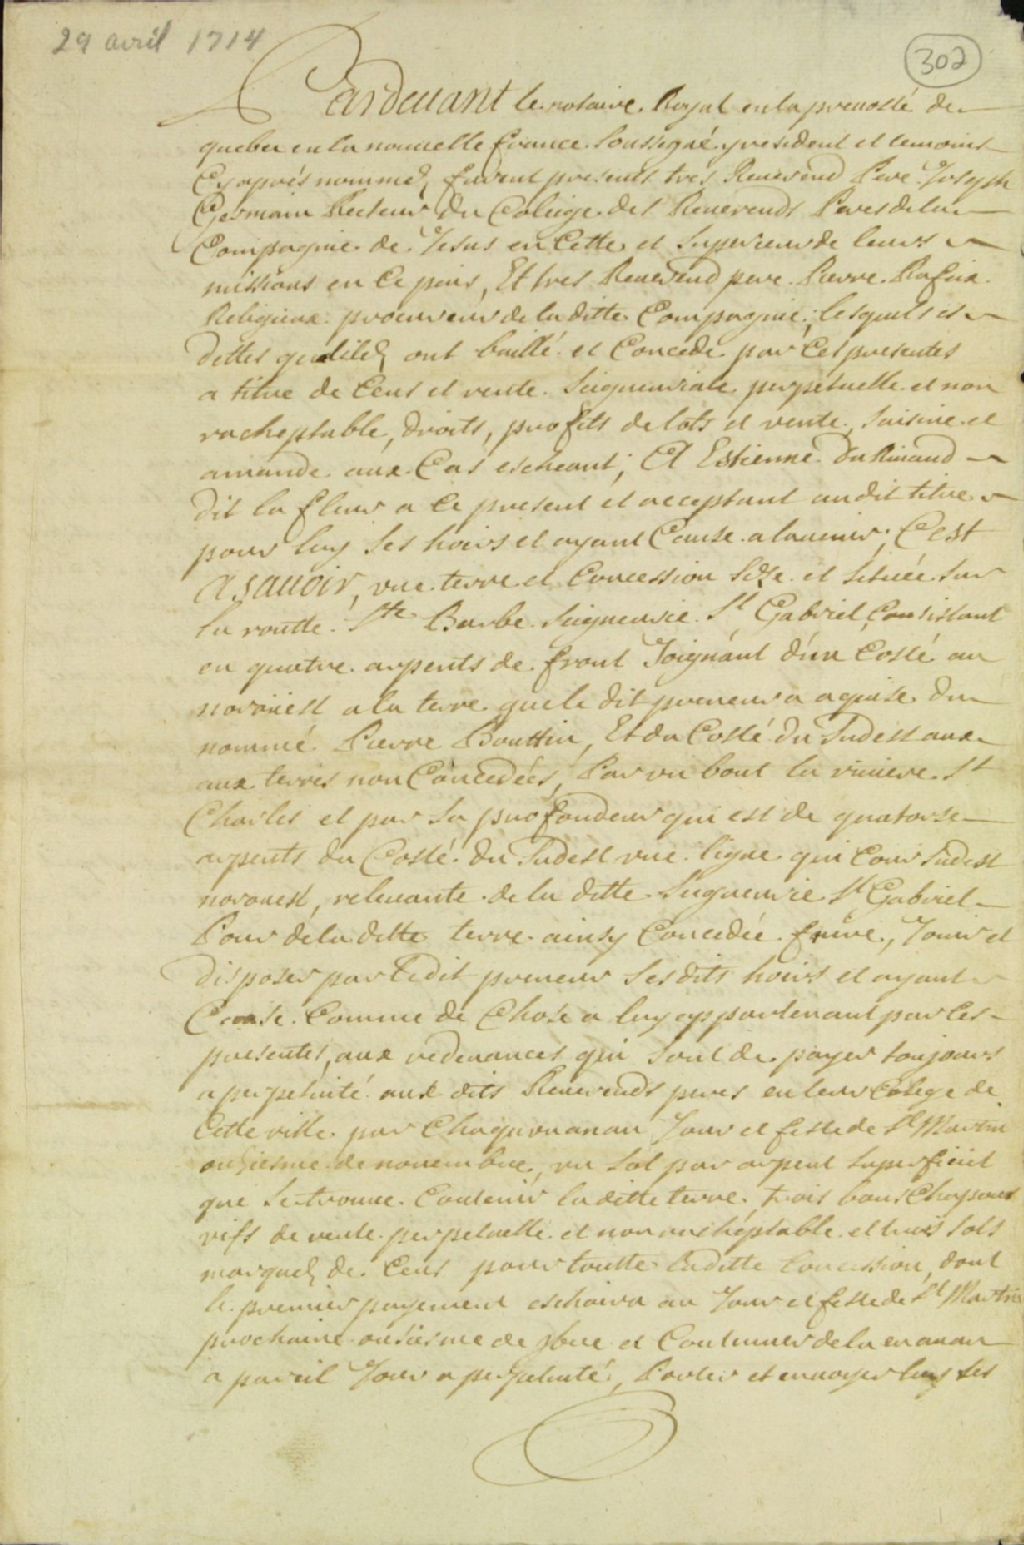 29 avril 1714
302
Pardeuant le notaire Royal en la preuosté de
quebec en la nouuelle france soussigné y resident et temoins
Cy aprés nommez, furent presents tres Reuerend Pere Joseph
Germain Recteur du Coleige des Reuerends Peres de la
Compagnie de Jesus en Cette et Superieur de leurs
missions en Ce païs, Et tres Reuerend pere Pierre Rafeix
Religieux procureur de la ditte Compagnie; lesquels es
dittes qualitéz ont baillé et Concedé par Ces presentes
a titre de Cens et rente Seigneuriale perpetuelle et non
racheptable, droits, profits de lots et vente, saisine et
amande aux Cas escheant; A Estienne
dit la fleur a Ce present et acceptant au dit titre
pour luy ses hoirs et ayant Cause a lauenir; C'est
A sauoir, vne terre et Concession size et située sur
la routte Ste Barbe Seigneurie St Gabriel, Consistant
en quatre arpents de front Joignant d'un Costé au
norouest a la terre que le dit preneur a aquise du
nommé Pierre Bouttin, Et du Costé du Sudest aux
aux terres non Concedées, Par vn bout la riuiere St
Charles et par sa profondeur qui est de quatorse
arpents du Costé du Sudest vne ligne qui Cour Sudest
norouest, releuante de la ditte Seigneurie St Gabriel
Pour de la ditte terre ainsy Concedée Jouir et
disposer par Ledit preneur ses dits hoirs et ayant
Cause Comme de Chose a luy appartenant par les
presentes, aux redeuances qui sont de payer toujours
a perpetuité aux dits Reuerends peres en leur Colege de
Cette ville par Chaqun an au Jour et feste de St Martin
onziesme de nouembre, vn sol par arpent superficiel
que se trouue Contenir la ditte terre trois bons Chapons
vifs de rente perpetuelle et non racheptable et trois sols
marquez de Cens pour toutte laditte Concession, dont
le premier payement eschoira au Jour et feste de St Martin
prochaine onsiesme de 9bre et Continuer de la en auan
a pareil Jour a perpetuité, Porter et enuoyer luy ses